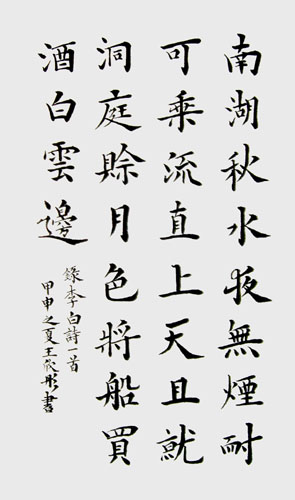 南湖秋水夜無煙耐
可乘流直上天且就
洞庭賒月色將船買
酒白雲邊
錄李白詩一首
甲申之夏王欣彤書